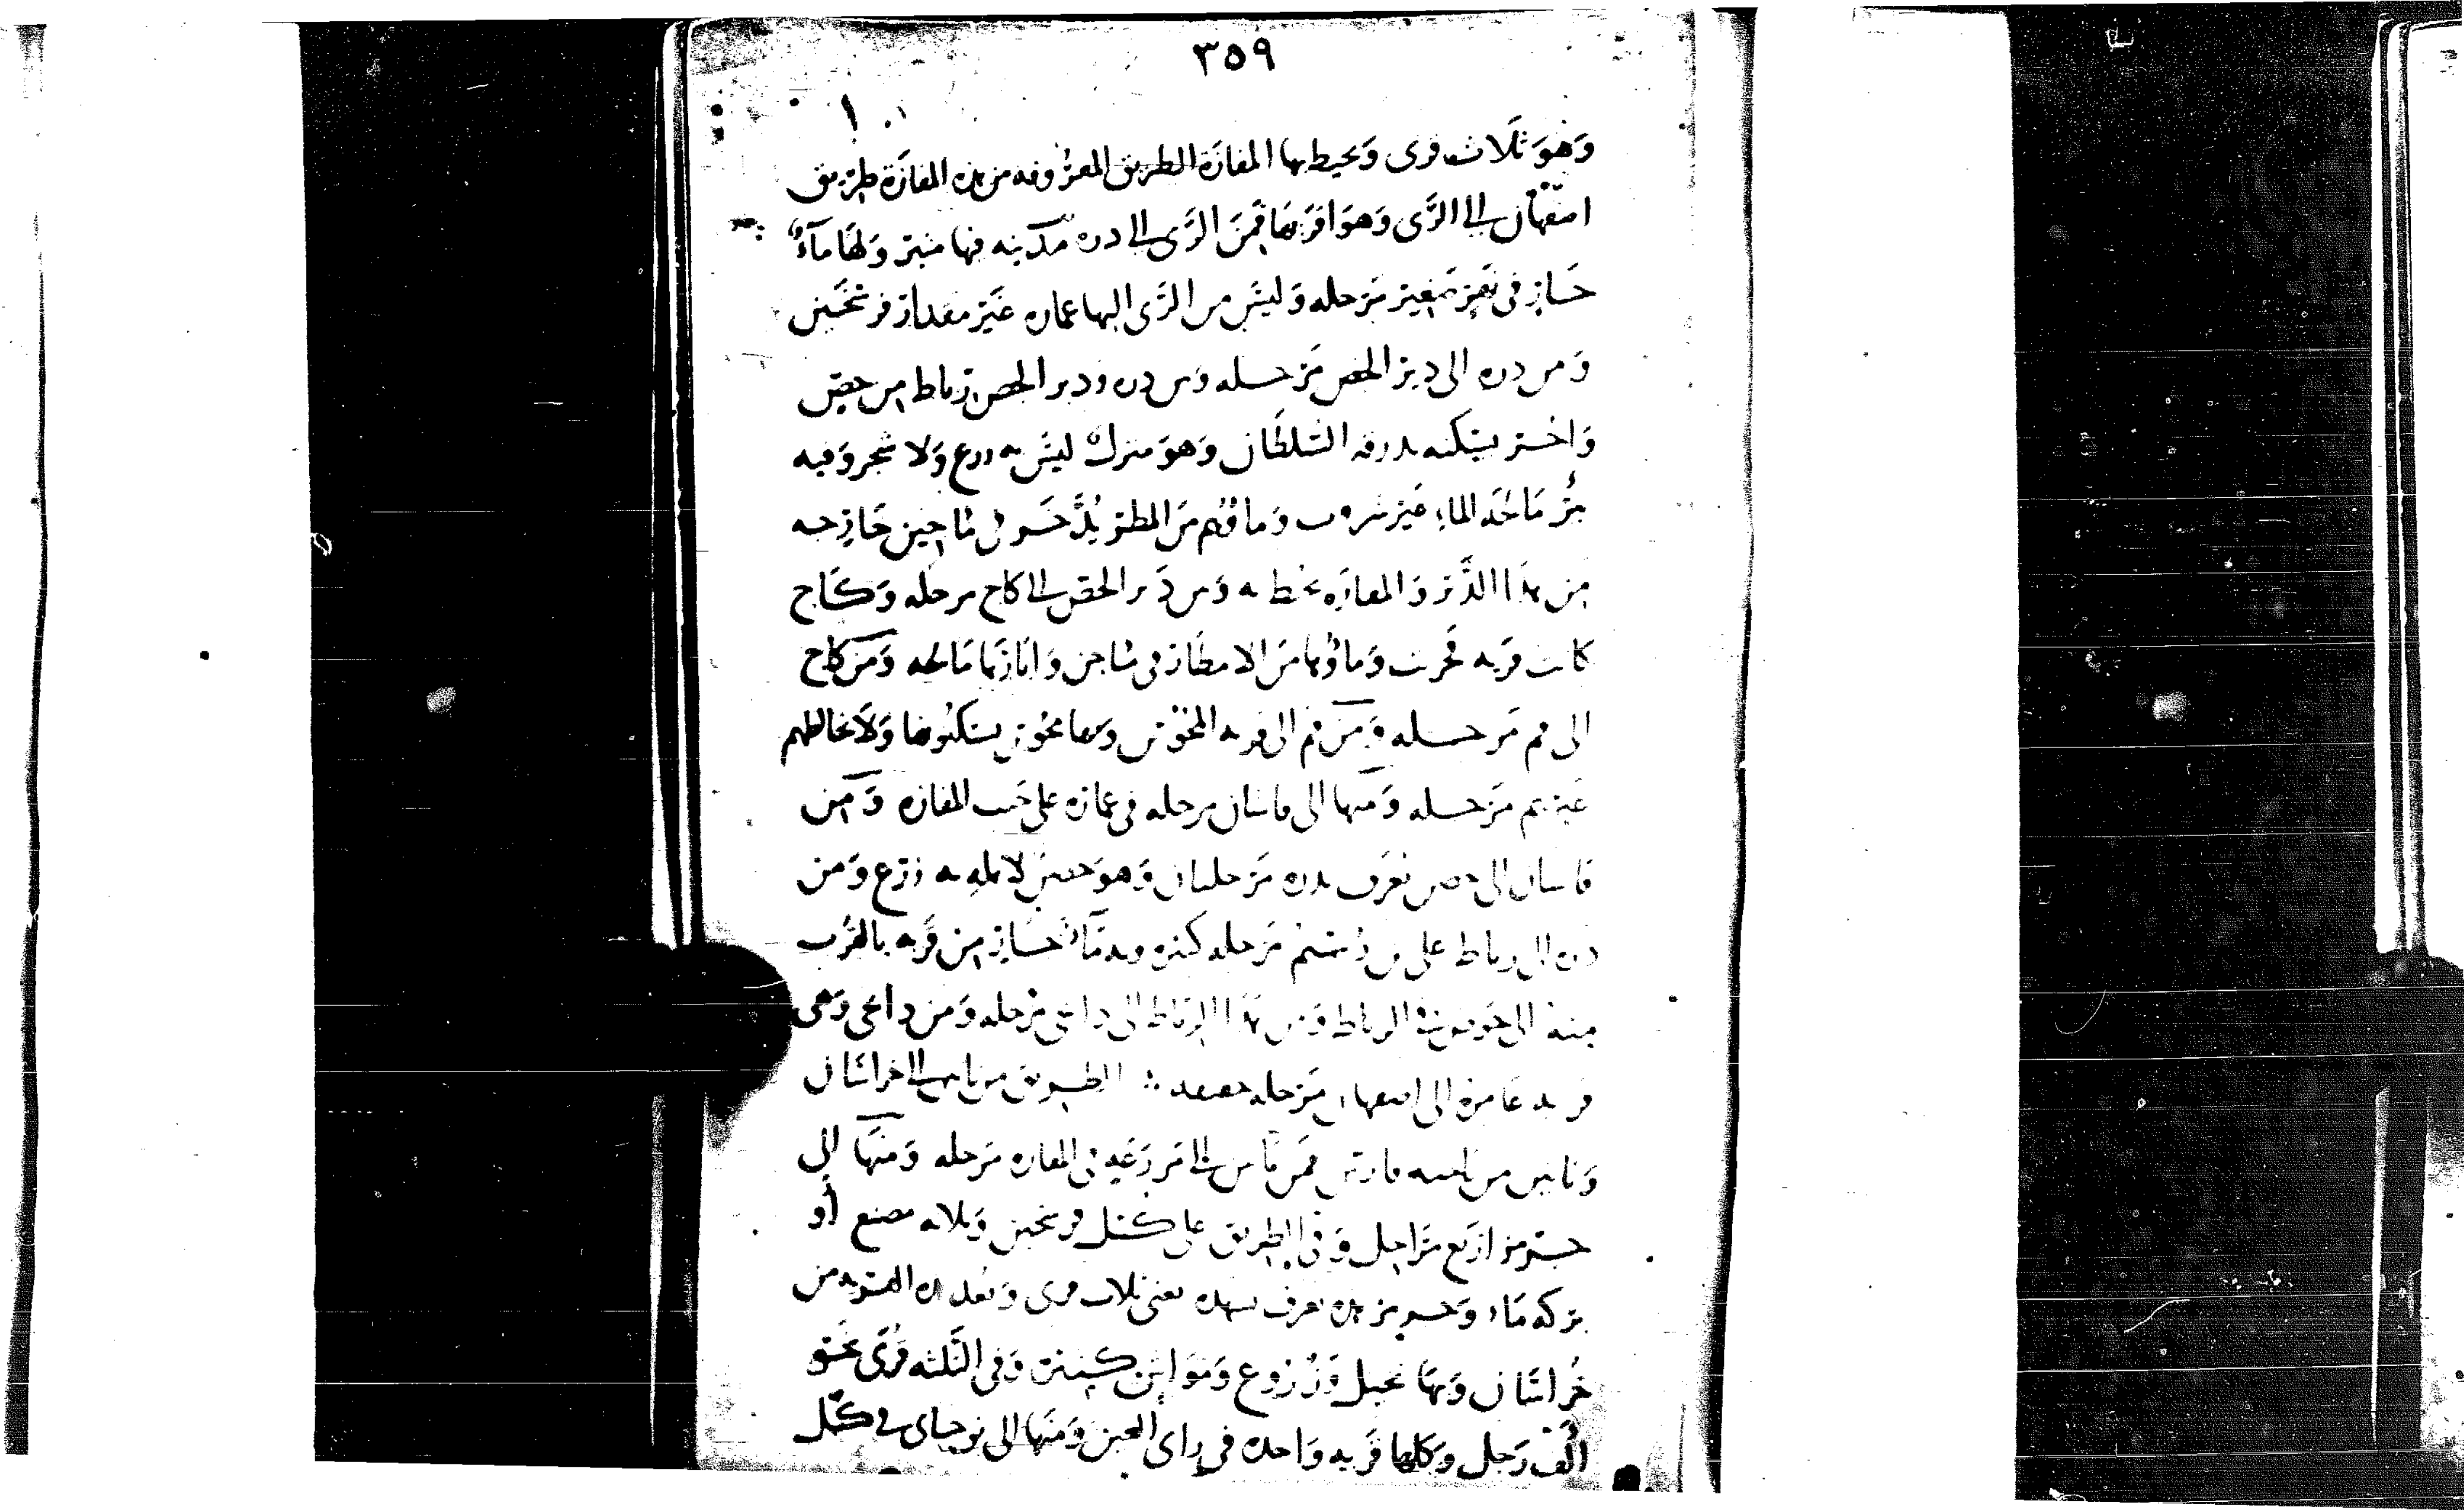 ٣٥٩
وَهوَ ثلاث قرى وَيحيط بها المفازة الطريق المعروفه من هذه المفازة طريق
اصفهان الى الرَّى وَهوَ اقربها فمن الرَّى الى دره مدينه فيها منبر وَلها مآءٌ
جَارٍ فى نهر صغير مرحله وَليس من الرَّى اليها عماره غير مقدار فرسخين
وَمن دره الى دير الجص مرحله وَبين دره ودير الجص رباط من جص
وَاجر يسكنه بدرقه السلطان وَهوَ منزل ليس به زرع وَلا شجر وَفيه
بئر مَالحه الماء غير شروب وَماؤهم من المطر فى حَوضين خارجه
من هذا الدير وَالمفازه تحيط به وَمن دير الجص الى كاج مرحله وَكاج
كانت قريه فخربت وَماؤها من الامطار فى وَابارها مَالحه وَمن كاج
الى قم مرحله وَمن قم الى قريه المجوس وَبها مجوس يسكنونها وَلا يخالطهم
غيرهم مرحله وَمنها الى قاسان مرحله فى عماره على جنب المفازه وَمن
قاسان الى حصن يعرف بدره مرحلتان وَهوَ حصن لاهله به زرع وَمن
دره الى رباط على بن رستم مرحله كبيره وبه مآء جار من قريه بالقرب
منه الى حوض فى الرباط وَمن هذا الرباط الى داعى مرحله وَمن داعى وَهى
قريه عَامره الى اصفهان مرحله خفيفه ؞ الطريق من نايين الى خراسان
وَنايين من فارس فمن نايين الى مزرعه فى المفازه مرحله وَمنها الى
جرمز اربع مراحل وَفى الطريق على كل فرسخين وَثلاثه مصنع أو
بركه مَاء وَجرمز هذه تعرف بسهده يعنى ثلاث قرى وَتعد هذه القريه من
خُراسان وَبها نخيل وَزروع وَمواش كثيره وَفى الثلثه قُرى نحو
ألف رَجل وكلها قريه وَاحده فى راى العين وَمنها الى نوجاى على كل